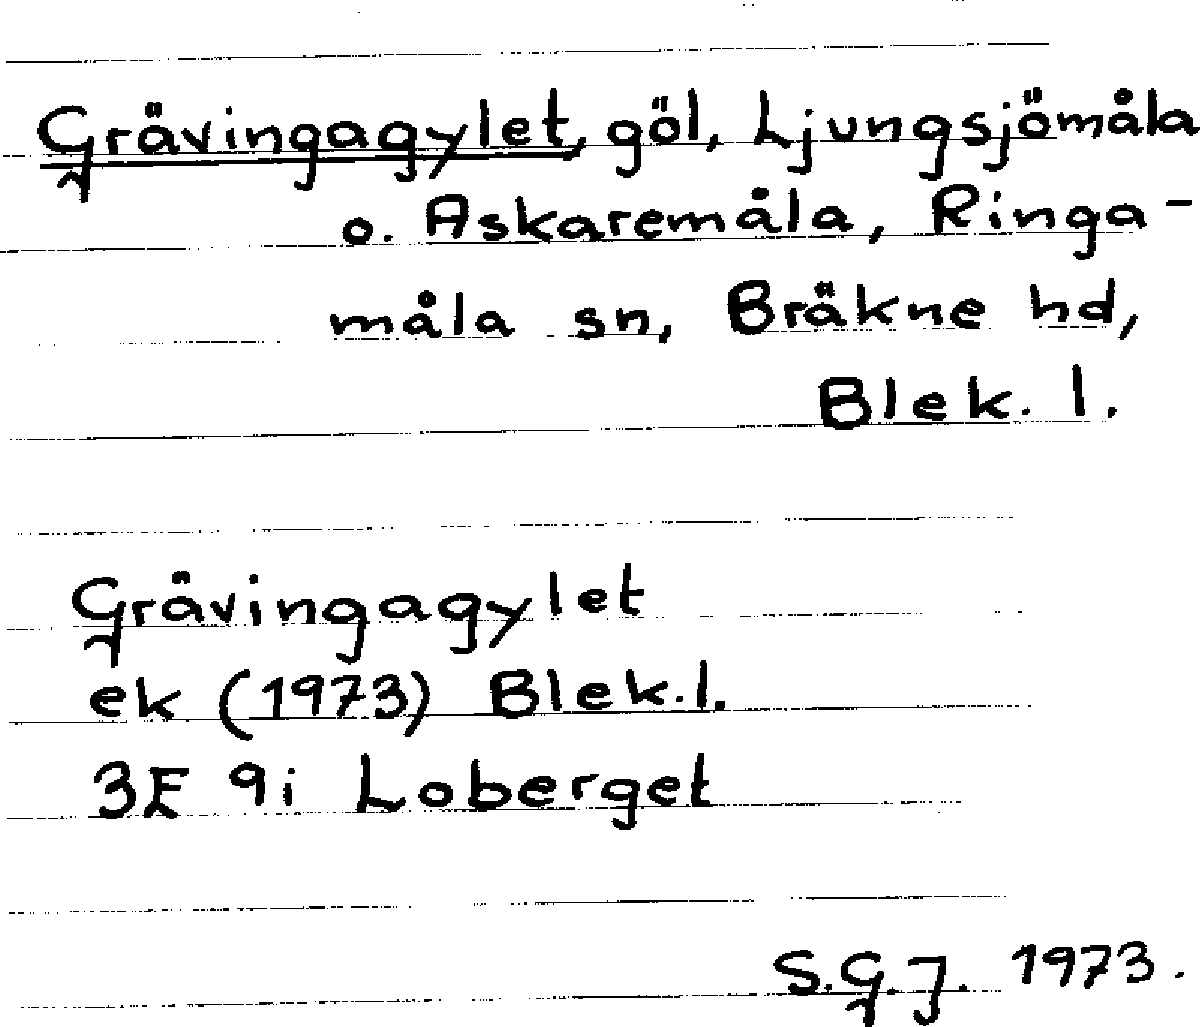 Grävingagylet, göl, Ljungsjömåla
o. Askaremåla, Ringa-
måla sn, Bräkne hd,
Blek. l.
Grävingagylet
ek (1973) Blek. l.
3F 9i Loberget
S.G.J. 1973.